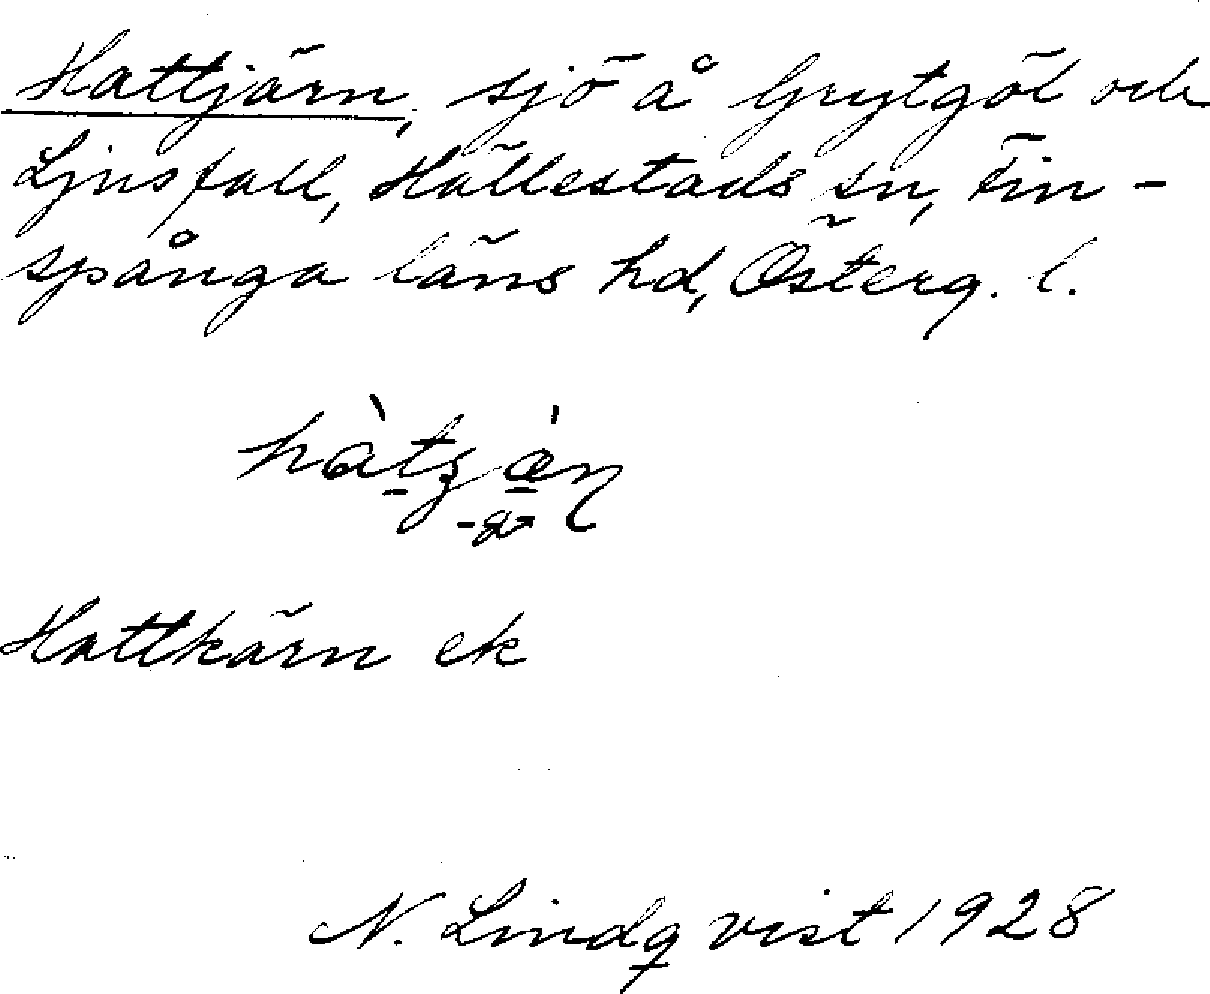 Hattjärn, sjö å Grytgöl och
Ljusfall, Hällestads sn, Fin-
spånga läns hd, Österg. l.
Hattkärn ek
N. Lindqvist 1928